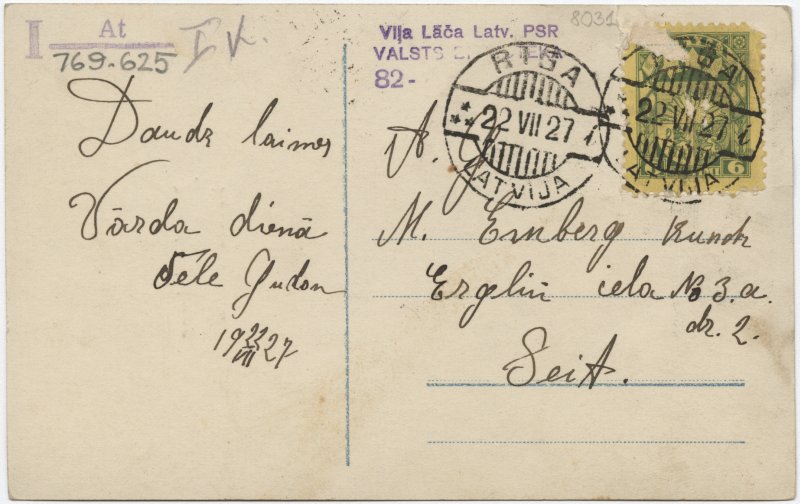 I At I K.
769-625
8031
Vija Lāča Latv. PSR
VALSTS
82-
RIGA
22 VII 27 i
LATVIJA
RIGA
22 VII 27 i
LATVIJA
6
Daudz laimes
Vārda dienā
vēle
19 22/VII 27
A. G.
M. Ernberg Kundz
Ergliu iela No 3.a.
dz. 2.
Šeit.